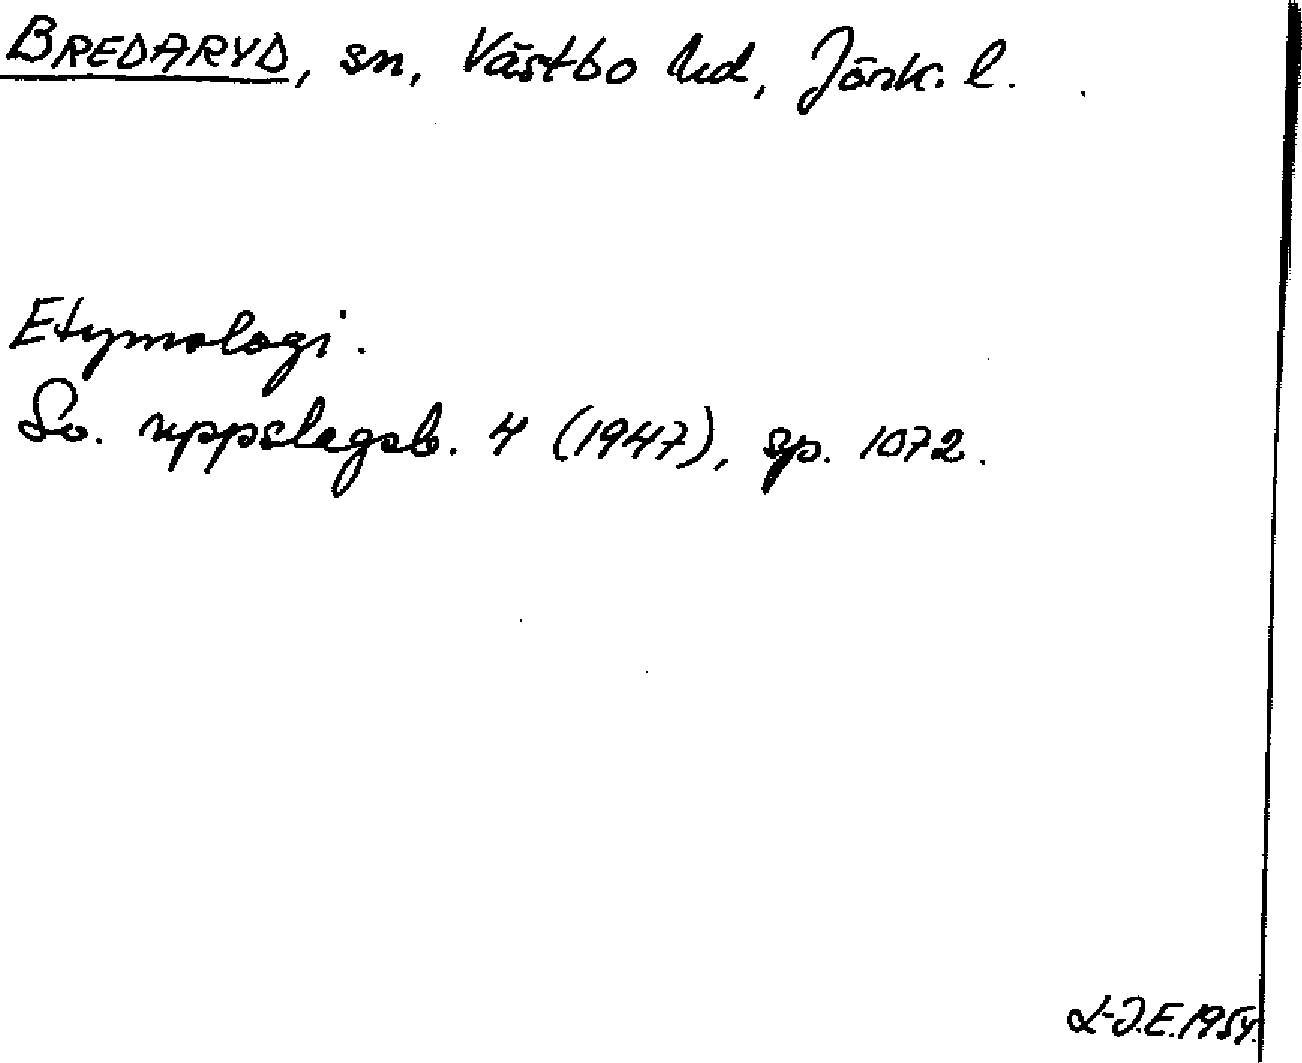 BREDARYD, sn, Västbo hd, Jönk. l.
Etymologi.
Sv. uppslagsb. 4 (1947), sp. 1072.
L-J.E. 1954.